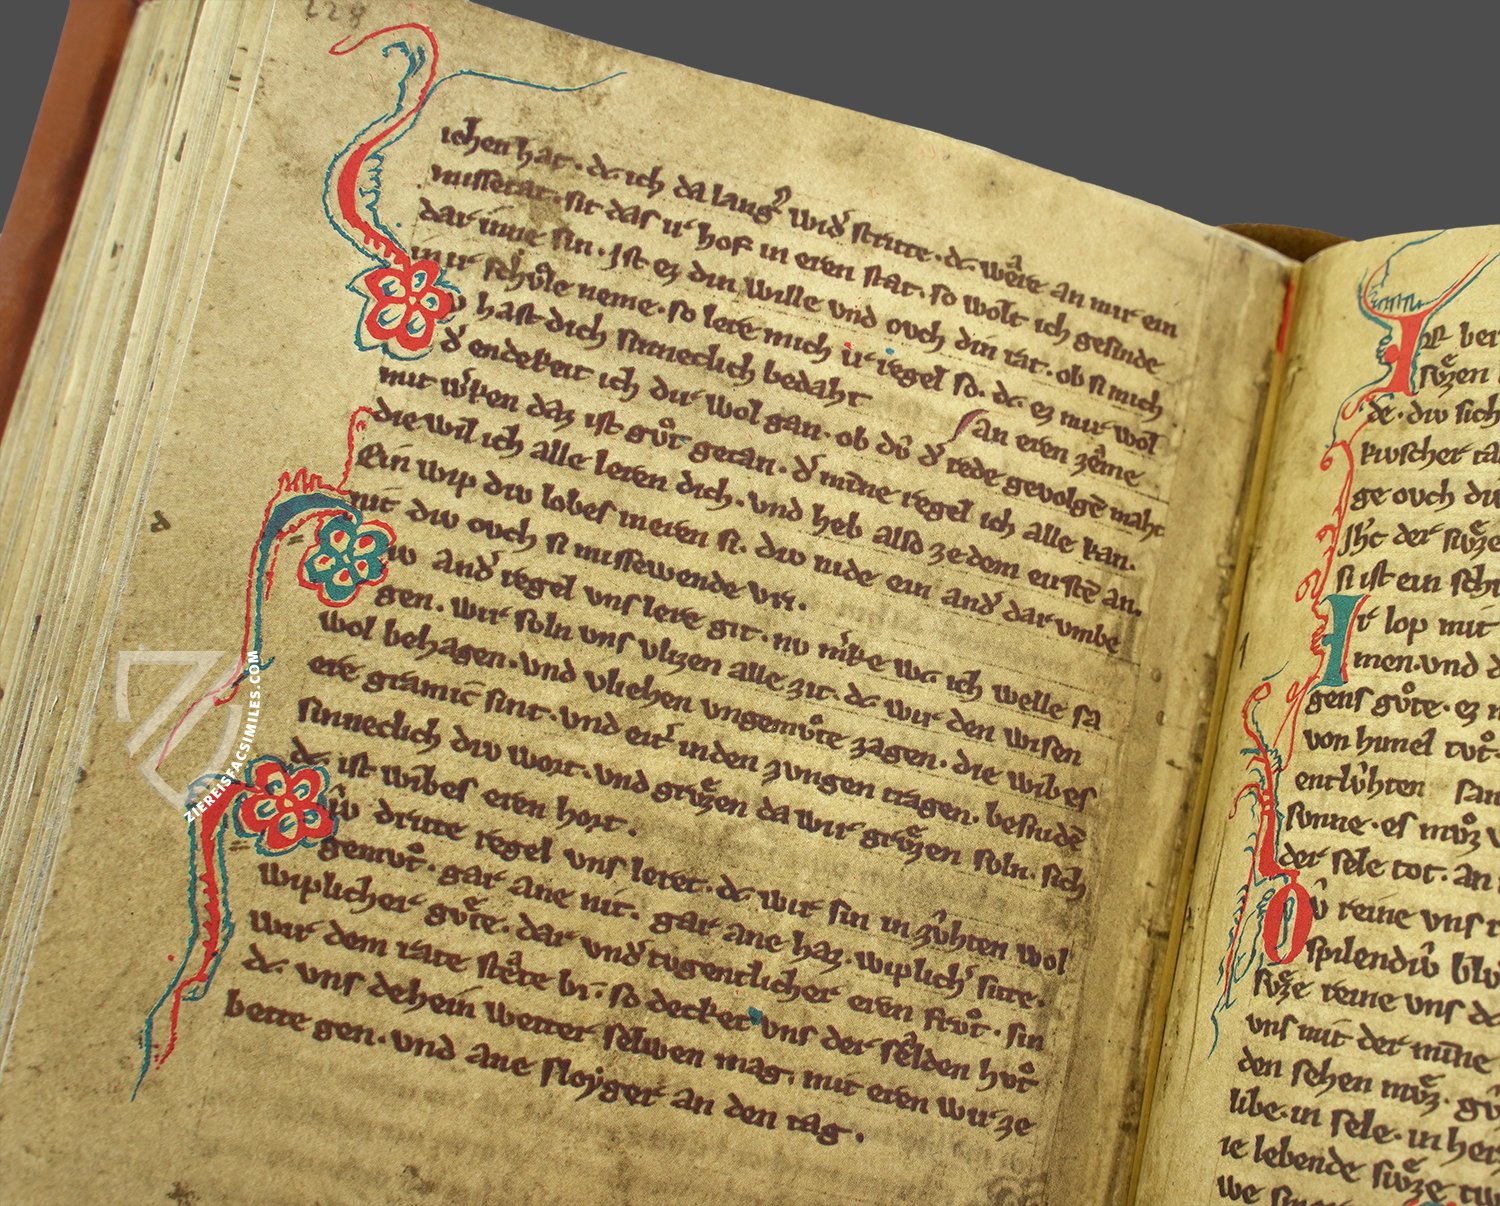 228
ichen hat · dc ich da lang͛ wid͛ strite · dc wêre an mir ein
missetat · sit das ir hof in eren stat · so wolt ich gesinde
dar inne sin · Ist ez din wille vnd ovch din rat · ob si mich
inir schůle neme · so lere mich ir regel so · dc ez mir wol
v hast dich sinneclich bedaht an eren zême
d͛ endekeit ich dir wol gan · ob dv̂ d͛ rede gevolgē maht
mit w͛ken daz ist gůt getan · d͛ mīne regel ich alle kan.
die wil ich alle leren dich · vnd heb also ze dem erstē an.
Ein wip div lobes meren si · div mide ein and͛ dar vmbe
nit div ovch si missewende vri.
iv and͛ regel vns lere git · nv m͛ke wc ich welle sa
gen. wir soln vns vlizen alle zit · dc wir den wisen
wol behagen · vnd vliehen vngemůte zagen · die wibes
ere gramic sint · vnd eit͛ inden zvngen tragen · beschidē
sinneclich div wort · vnd grůzen da wir grůzen soln · sich
dc ist wibes eren hort.
iv dritte regel vns leret · dc wir sin in zv̂hten wol
gemůt · gar ane nit · gar ane haz · wiplich͛ site ·
wiplicher gůte · dar vnd͛ tvgentlicher eren frůt · sin
wir dem rate stête bi · so decket vns der sêlden hůt
dc vns dehein wetter selwen mag · mit eren wir ze
bette gen · vnd ane sloyger an den tag ·
d
ZIEREISFACSIMILES.COM
Ir ber
sůzen
de · div sich
kivscher
ge ovch div
Ihc der sůze
si ist ein
Ir lop mit
men · vnd d
gens gůte · ez
von himel tůt
entlv̂hten
svnne · es můz
der sele tot · an
Dv̂ reine vns
spilendiv̂
sůze reine vns
vns mit der mīne
den sehen můz ·
libe · in sele · in
ie lebende sůze
we